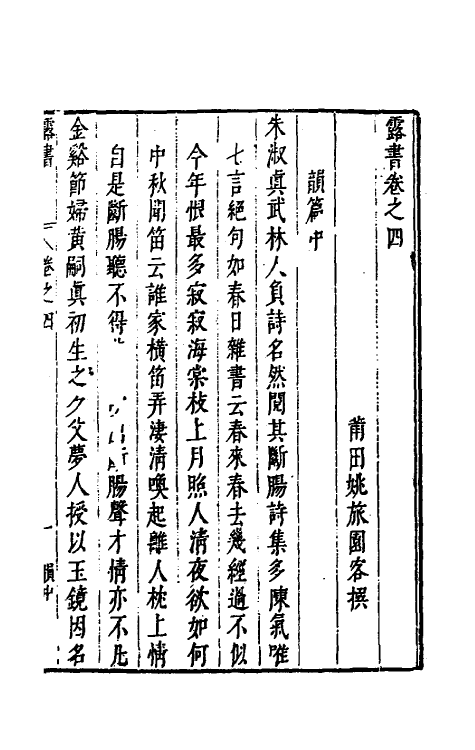 露書卷之四
莆田姚旅園客撰
韻篇中
朱淑真武林人負詩名然閱其斷腸詩集多陳氣唯
七言絕句如春日雜書云春來春去幾經過不似
今年恨最多寂寂海棠枝上月照人清夜欲如何
中秋聞笛云誰家橫笛弄淒清喚起離人枕上情
自是斷腸聽不得 腸聲才情亦不凡
金谿節婦黃嗣真初生之夕父夢人授以玉鏡因名
露書 卷之四 一 韻中